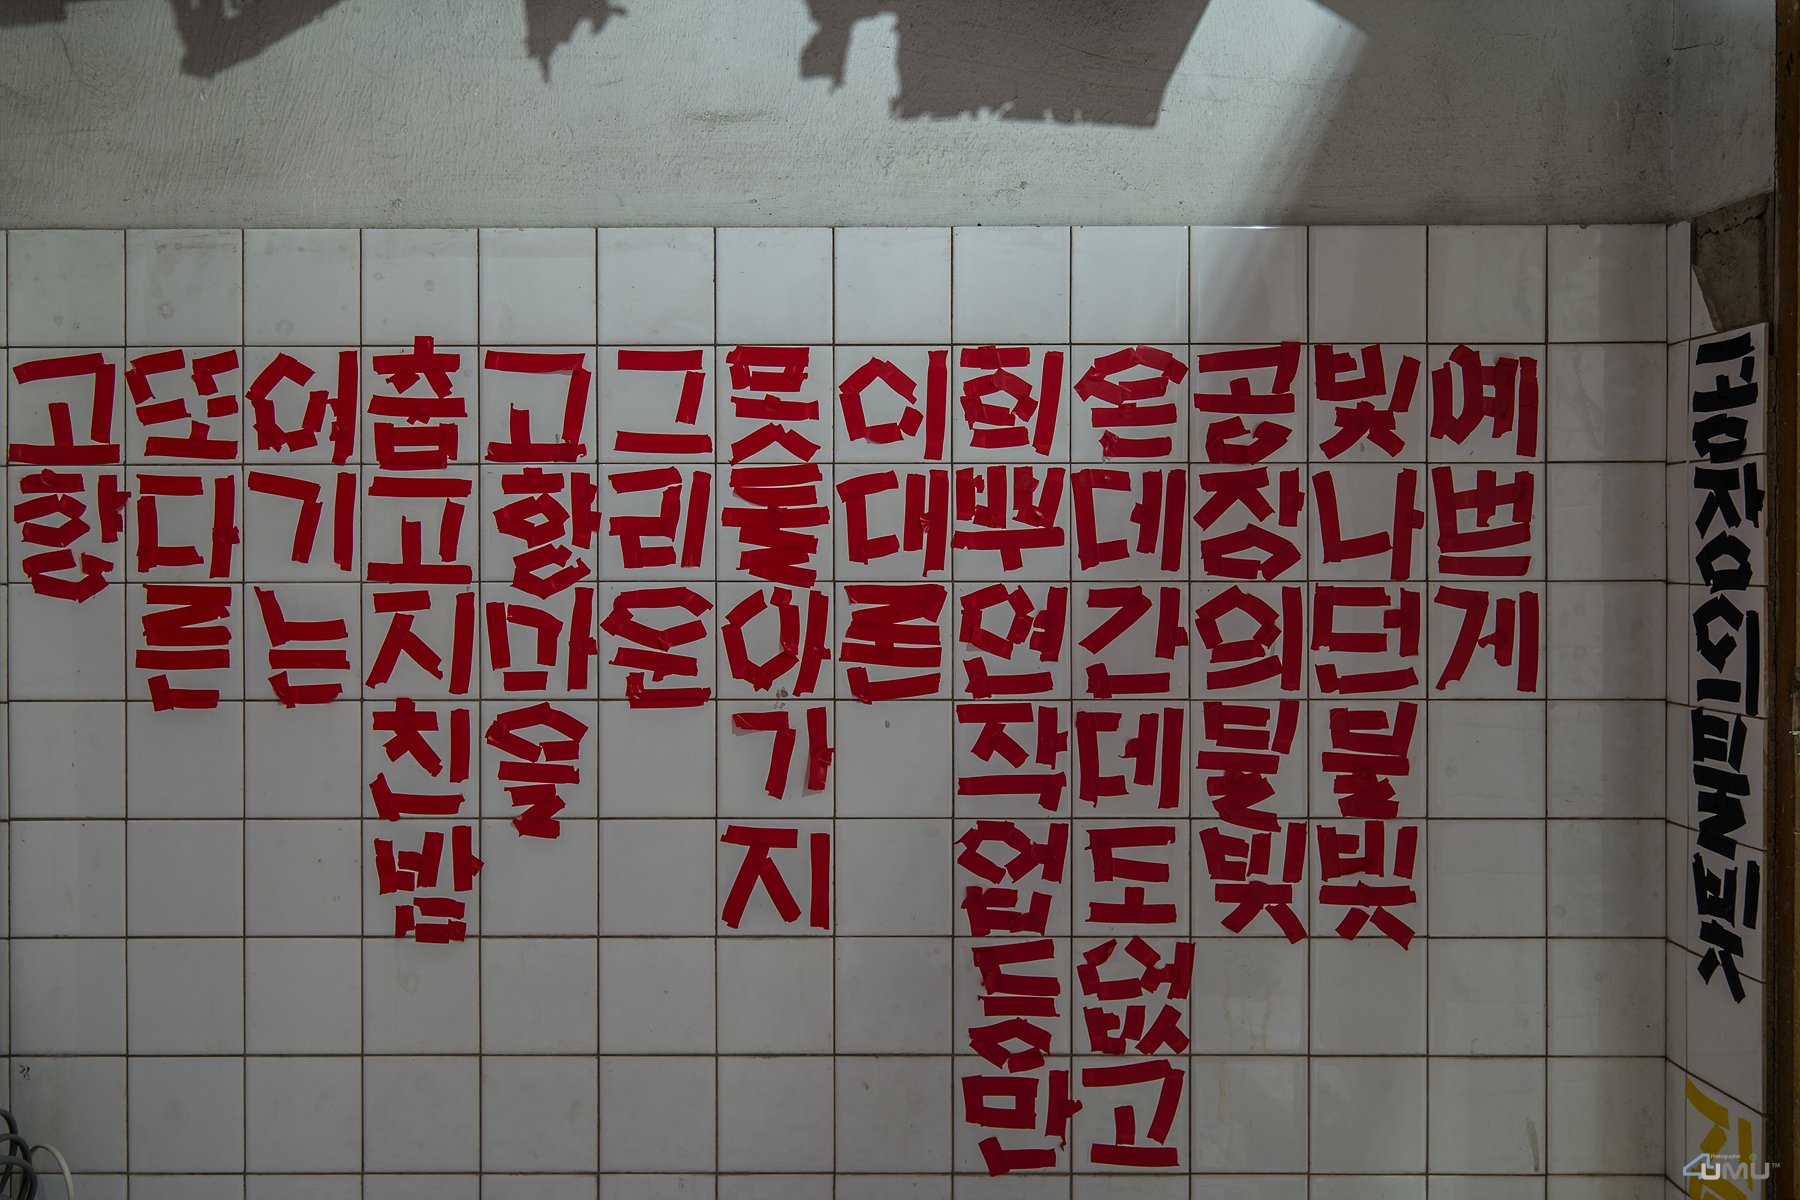 공장의불빛
예쁘게
빛나던불빛
공장의불빛
온데간데도없고
희뿌연작업등만
이대론
못돌아가지
그리운
고향마을
춥고지친밤
여기는
또다른
고향
Photographer
4UMU™